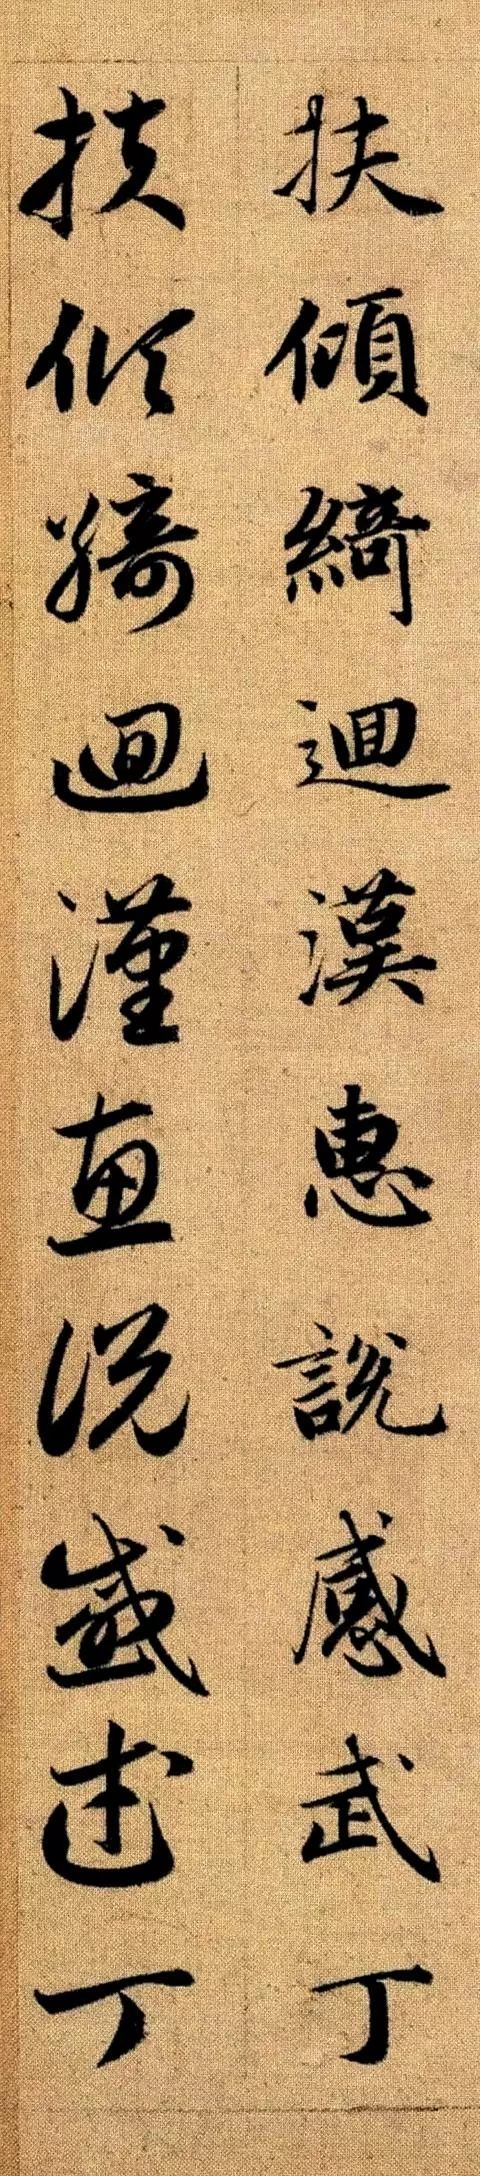 扶傾綺迴漢惠說感武丁
扶傾綺迴漢惠說感武丁